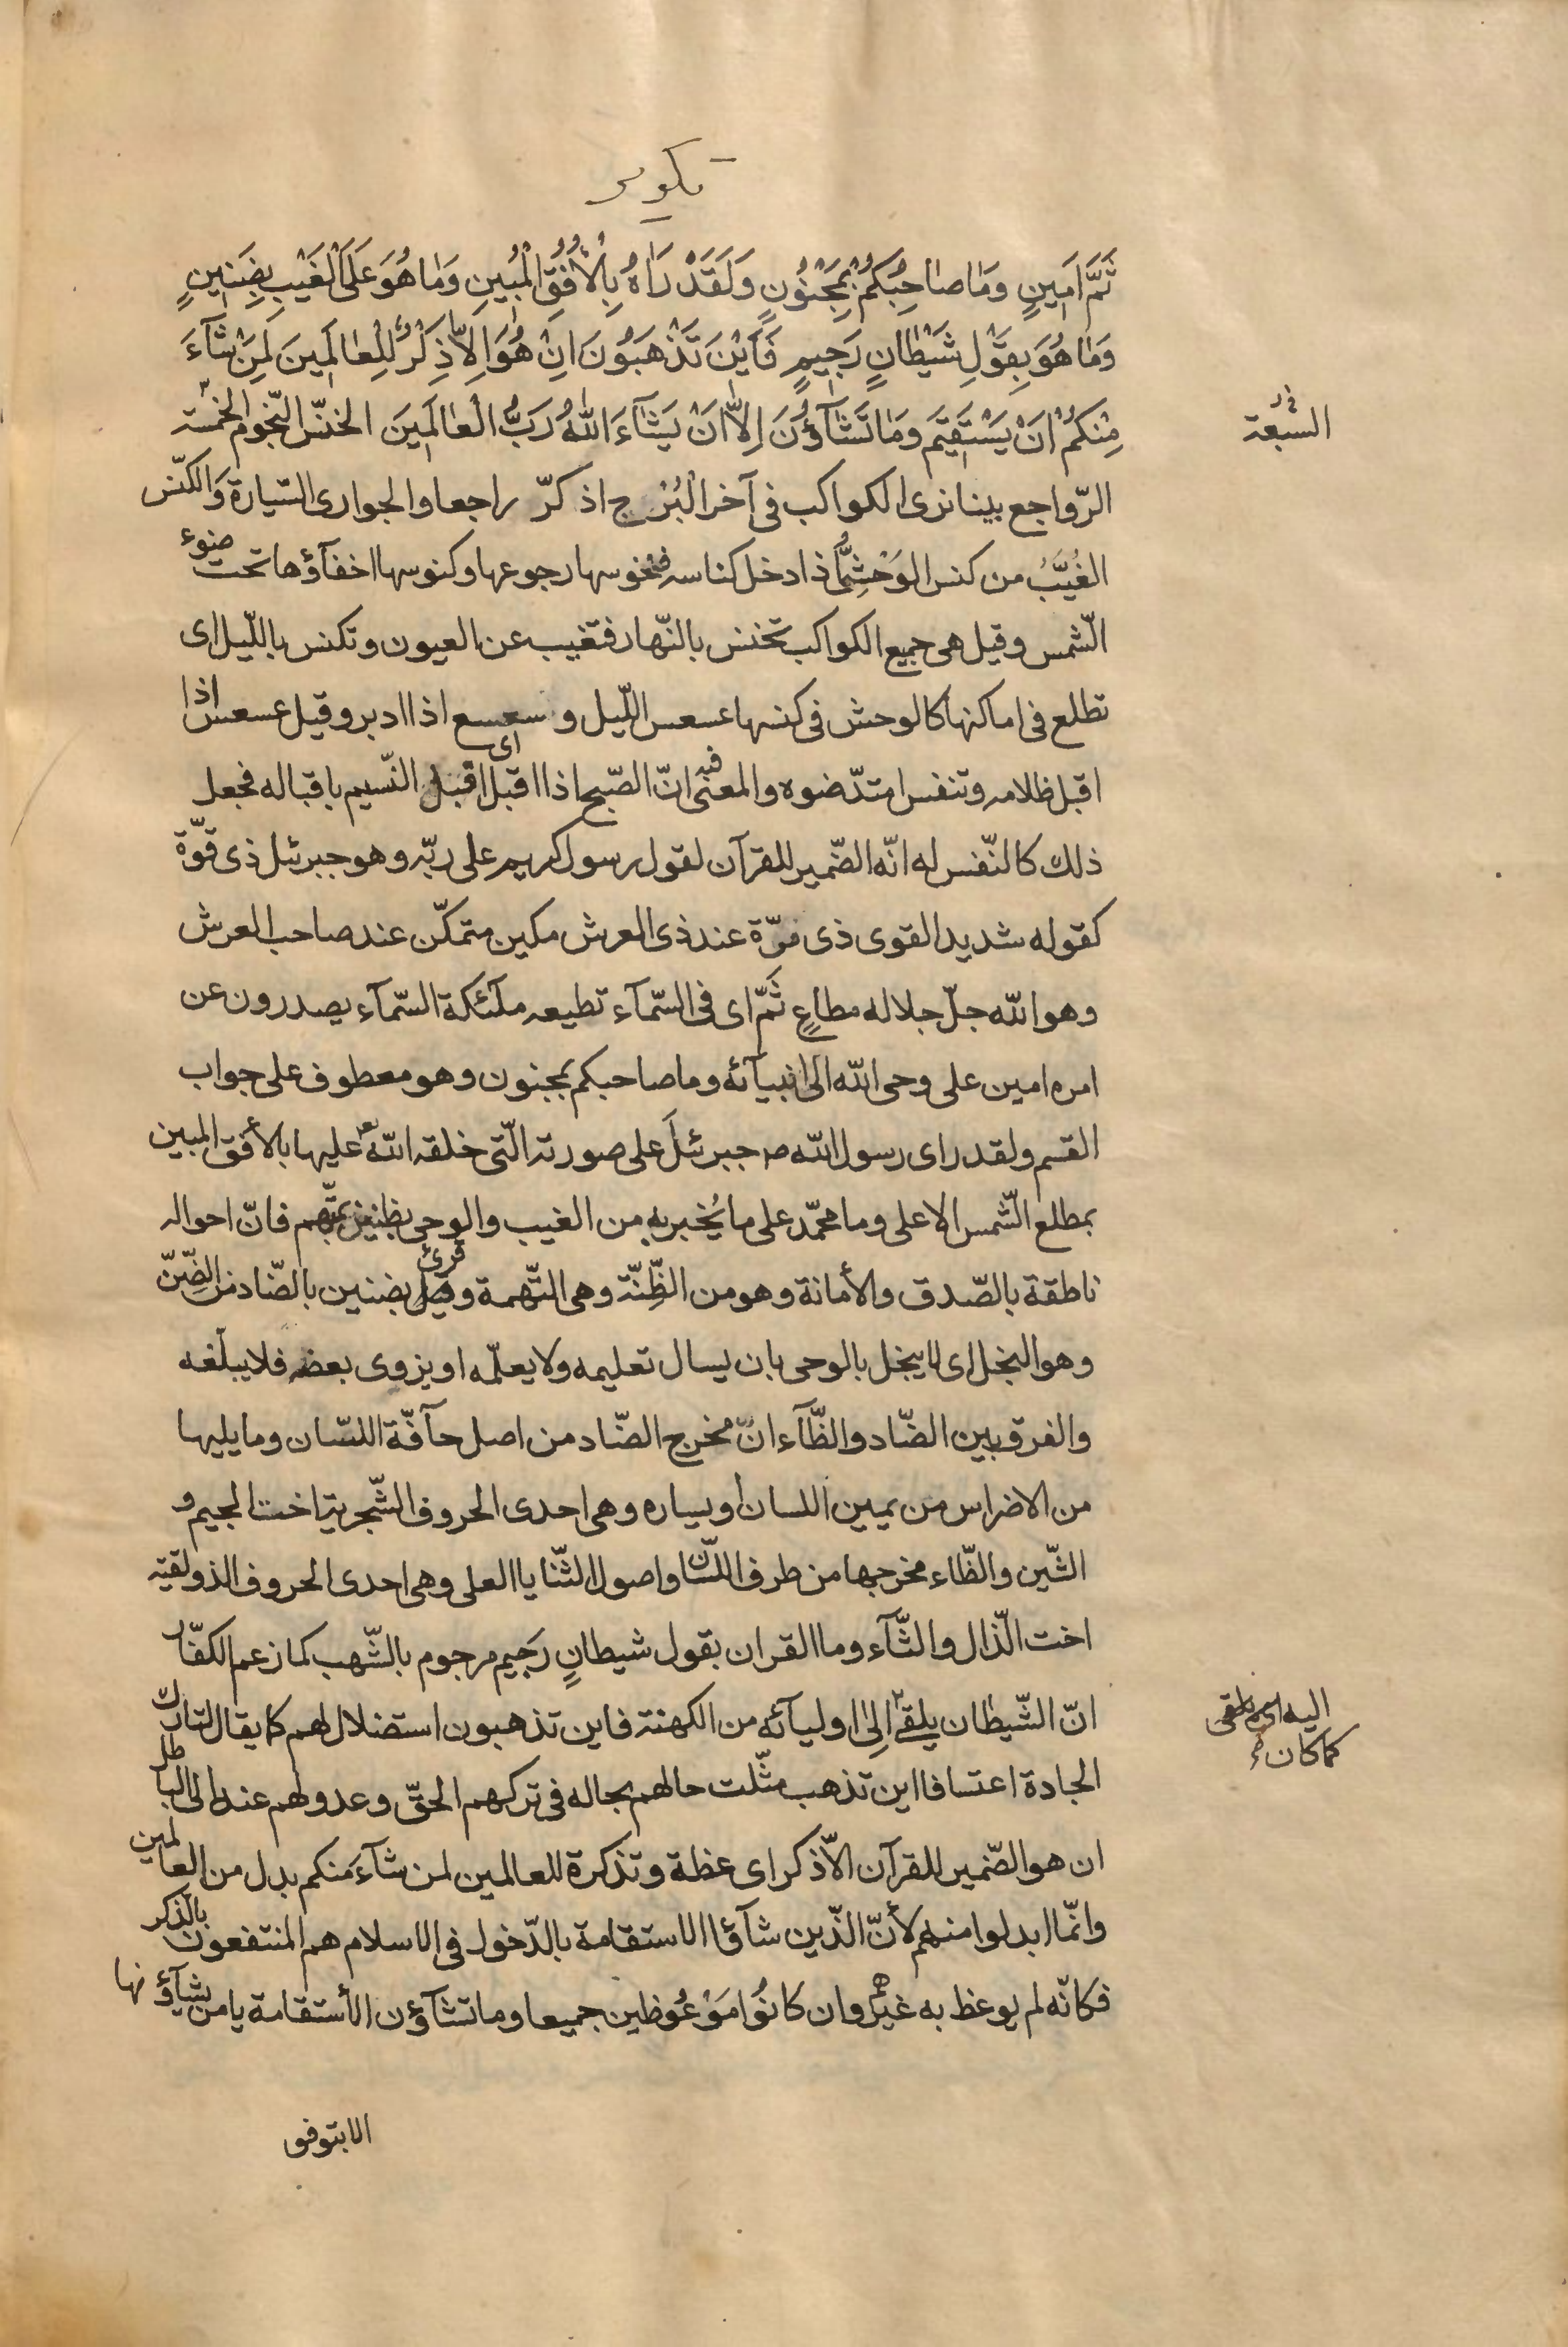 تكوير
ثَمَّ اَمِينٍ وَمَا صَاحِبُكُمْ بِمَجْنُونٍ وَلَقَدْ رَاٰهُ بِالْأُفُقِ الْمُبِينِ وَمَا هُوَ عَلَى الْغَيْبِ بِضَنِينٍ
وَمَا هُوَ بِقَوْلِ شَيْطَانٍ رَجِيمٍ فَاَيْنَ تَذْهَبُونَ اِنْ هُوَ اِلَّا ذِكْرٌ لِلْعَالَمِينَ لِمَنْ شَآءَ
مِنْكُمْ اَنْ يَسْتَقِيمَ وَمَا تَشَآؤُنَ اِلَّا اَنْ يَشَآءَ اللّٰهُ رَبُّ الْعَالَمِينَ الخنّس النّجوم الخمسة
السبعة
الرّواجع بينا نرى الكواكب فى آخر الْبُرْج اذ كرّ راجعا والجوارى السّيارة وَالكنّس
الغُيَّبُ من كنس الوَحْشِىُّ اذا دخل كناسه فخنوسها رجوعها وكنوسها اخفآؤها تحت ضوء
الشّمس وقيل هى جميع الكواكب تخنس بالنّهار فتغيب عن العيون وتكنس باللّيل اى
تطلع فى اماكنها كالوحش فى كنسها عسعس اللّيل و سعسع اذا ادبر وقيل عسعس اذا
اقبل ظلامه وتنفس امتدّ ضوه والمعنى فيه انّ الصّبح اذا اقبل اى اقبل النّسيم باقباله فجعل
ذلك كالنّفس له انّه الضّمير للقرآن لقول رسول كريم على ربّه وهو جبرئيل ذى قوّة
كقوله شديد القوى ذى قوّة عند ذى العرش مكين متمكّن عند صاحب العرش
وهو الله جلّ جلاله مطاعٍ ثَمّ اى فى السّمآء تطيعه ملآئكة السّمآء يصدرون عن
امره امين على وحى الله الى انبيآئه وما صاحبكم بمجنون وهو معطوف على جواب
القسم ولقد راى رسول الله ص جبرئيل على صورته الّتى خلقه الله عليها بالأفق المبين
بمطلع الشّمس الاعلى وما محمّد على ما يُخبر به من الغيب والوحى بظنين بمتّهم فانّ احواله
ناطقة بالصّدق والأمانة وهو من الظِّنّة وهى التّهمة وقرئ بضنين بالضّاد من الضِّنّ
وهو البخل اى لا يبخل بالوحى بان يسال تعليمه ولا يعلّمه او يزوى بعضه فلا يبلّغه
والفرق بين الضّاد والظّآء انّ مخرج الضّاد من اصل حآفّة اللسّان وما يليها
من الاضراس من يمين اللسان او يساره وهى احدى الحروف الشّجرية اخت الجيم و
الشّين والظّاء مخرجها من طرف اللسّان واصول الثّنايا العلى وهى احدى الحروف الذولقية
اخت الّذال والثّآء وما القران بقول شيطانٍ رَجيم مرجوم بالشّهب كما زعم الكفّار
انّ الشّيطان يلقى اِلى اوليآئه من الكهنة فاين تذهبون استضلال لهم كما يقال لتارك
اليه
كما كان
الجادة اعتسافا اين تذهب مثّلت حالهم بحاله فى تركهم الحقّ وعدولهم عنه الى الباطل
ان هو الضّمير للقرآن الّا ذكر اى عظة وتذكرة للعالمين لمن شآءَ منكم بدل من العالمين
وانّما ابدلوا منهم لأنّ الّذين شآؤا الاستقامة بالدّخول فى الاسلام هم المنتفعون بالذكر
فكانّه لم يوعظ به غيرهم وان كانُوا مَوْعُوظين جميعا وما تشآؤن الأستقامة يا من يشآؤنها
الا بتوفيق